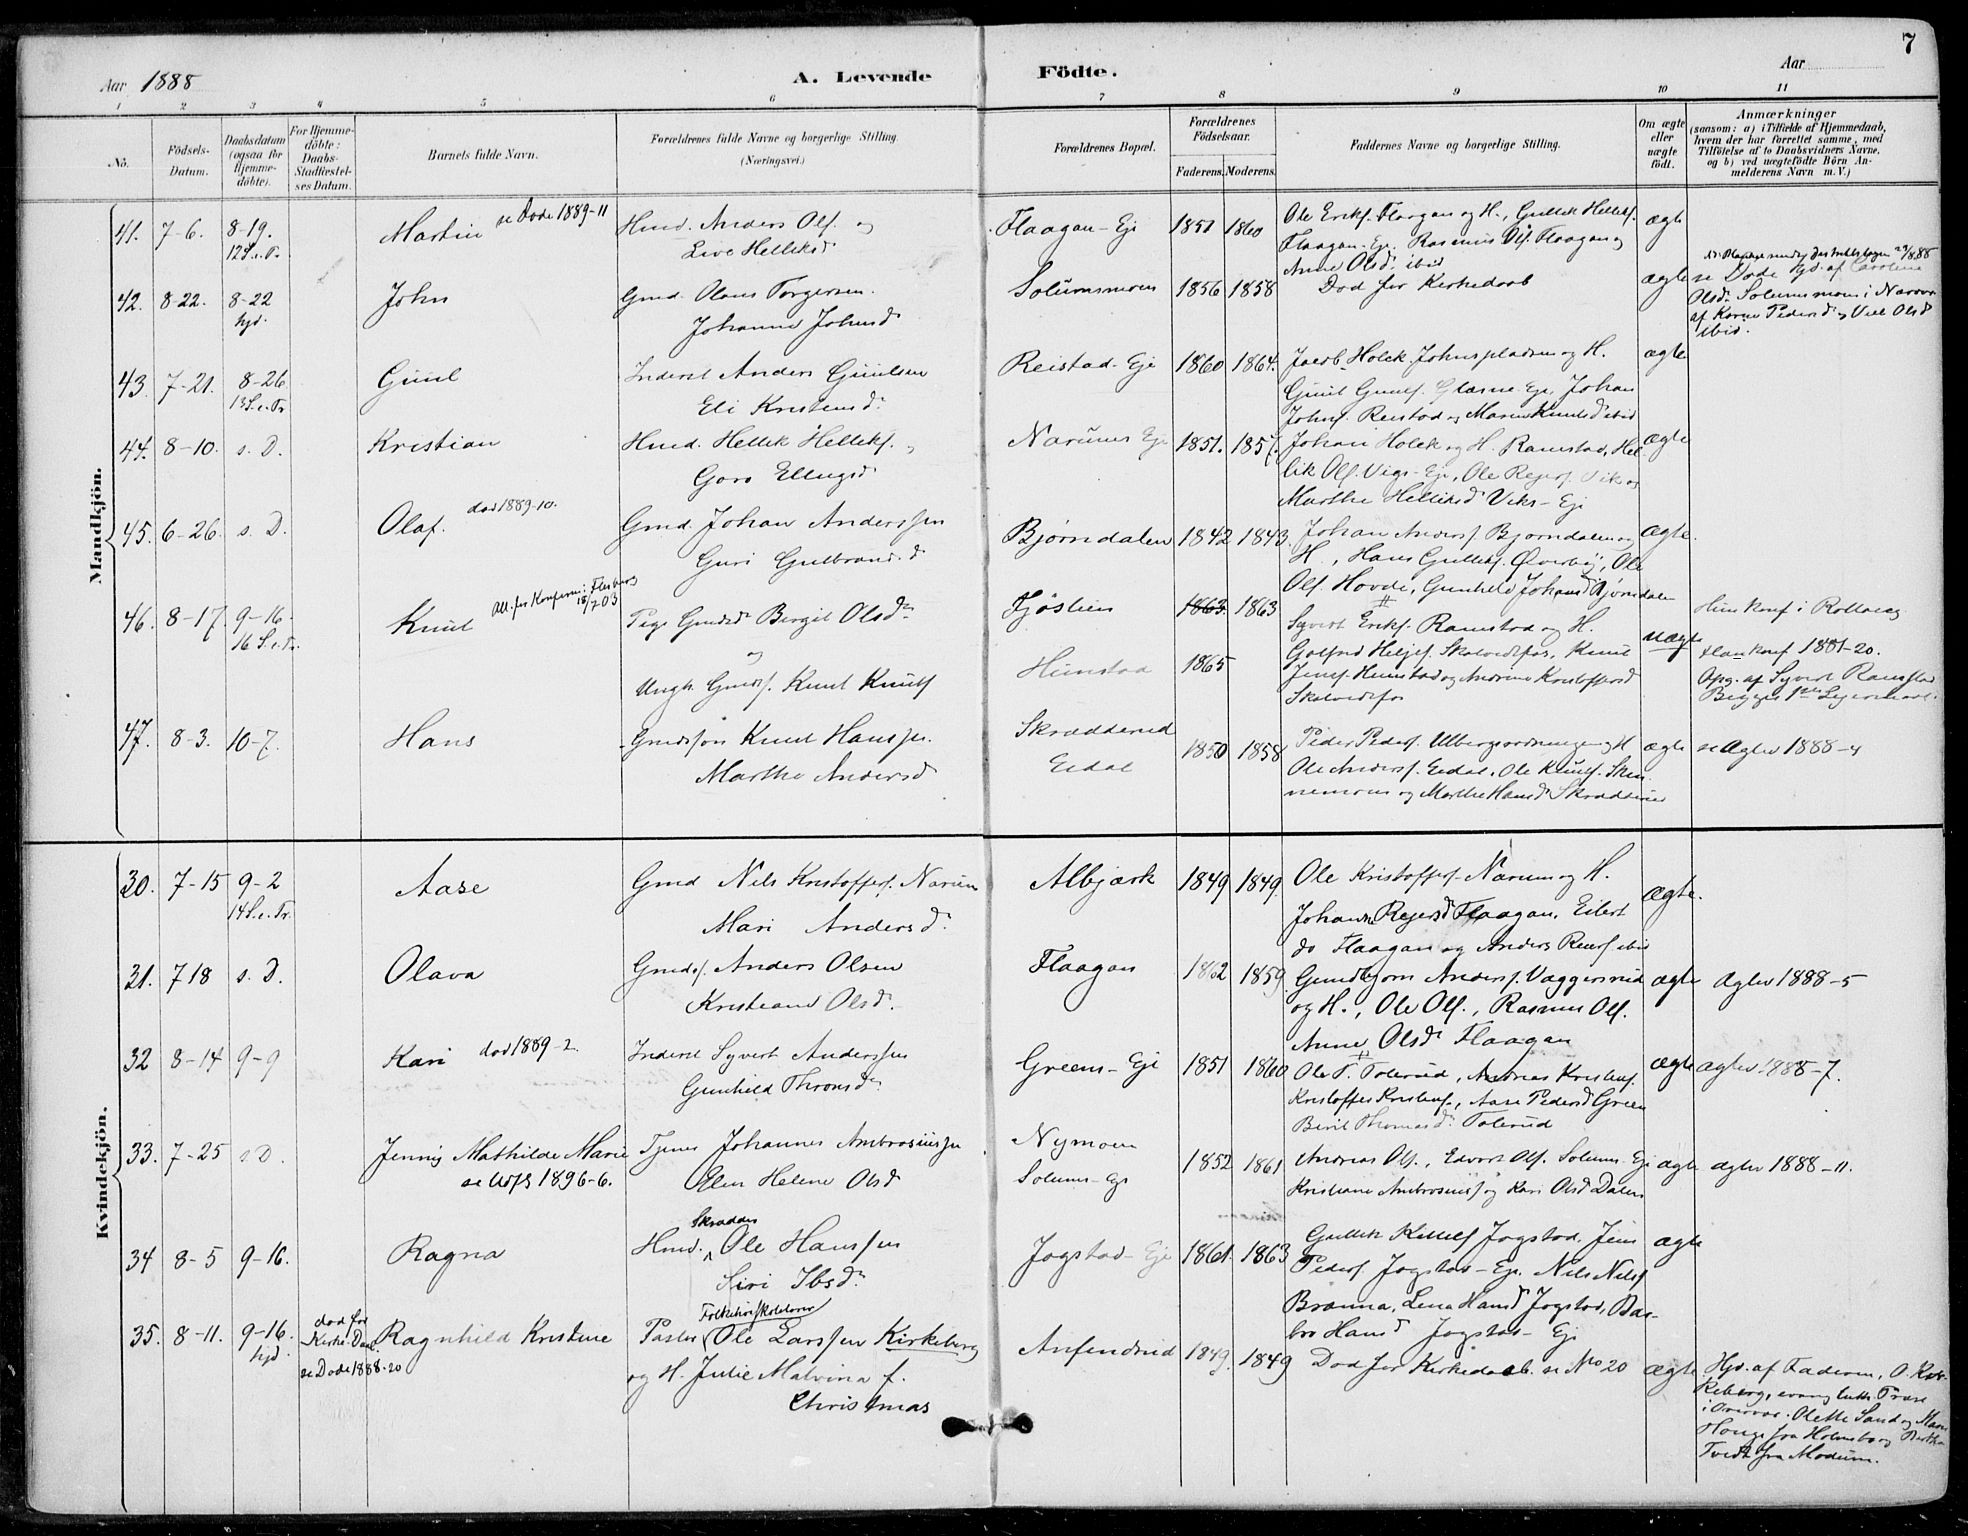 7
Aar 1888
A. Levende Födte.
Aar
1 2 3 4 5 6 7 8 9 10 11
No.
Födsels-Datum.
Daabsdatum (ogsaa for Hjemme-döbte).
For Hjemme-döbte: Daabs-Stadfæstel-ses Datum.
Barnets fulde Navn.
Forældrenes fulde Navne og borgerlige Stilling. (Næringsvei.)
Forældrenes Bopæl.
Forældrenes Födselsaar.
Faderens. Moderens.
Faddernes Navne og borgerlige Stilling.
Om ægte eller uægte födt.
Anmærkninger
(saasom: a) i Tilfælde af Hjemmedaab, hvem der har forrettet samme, med Tilföielse af to Daabsvidners Navne, og b) ved uægtefödte Börn An-melderens Navn m.V.)
Mandkjön.
41. 7-6. 8-19. 12 S.e.Tr. Martin se Døde 1889-11
Hmd. Anders Ols. og
Live Helleksd
Flaagan-Eje 1851 1860
Ole Eriks. Flaagan og H., Gullik Helleks.
Flaagan-Eje. Rasmus Ols. Flaagan og
Anne Olsd. ibid
ægte
42. 8-22. 8-22 hjd. John
Gmd. Olaus Torgersen.
Johanne Johnsd
Solumsmoen 1856 1858
Død før Kirkedaab
ægte
se Døde hjd. af Caroline
Olsd. Solumsmoen i Nærvær
af Karen Pedersd og Olsd
ibid.
43. 7-21. 8-26 13 S.e.Tr. Guul
Inderst Anders Guulsen
Eli Kristensd.
Reistad-Eje 1860 1864.
Jacob Holek Johnspladsen og H.
Guul Guuls. Glasne-Eje, Johan
Johns. Reistad og Maren Knudsd ibid
ægte
44. 8-10. s. D. Kristian
Hmd. Hellek Helleks. og
Goro Ellingsd
Narums Eje 1851. 1857.
Johan Holek og H. Ramstad, Hel
lik Ols. Vigs-Eje, Ole Reiers. Vik og
Marthe Helleksd Viks-Eje
ægte
45. 6-26. s. D. Olaf. død 1889-10.
Gmd. Johan Anderssen
Guri Gulbrandsd
Bjørndalen 1842 1843
Johan Anders. Bjørndalen og
H., Hans Gulliks. Øverby, Ole
Ols. Hovde, Gunhild Johansd Bjørndalen
ægte.
46. 8-17 9-16. 16 S.e.Tr. Knut
Pige Gmdsd Birgit Olsd
og
Ungk. Gmds. Knut Knuts
Fjøslien 1863 1863
Himstad 1865
Syvert Eriks. Ramstad og H.
Skalvedsfos, Knut
Jens. Himstad og Andrine Kristoffersd
Skalvedsfos
uægte
Hun konf i Rollag
Han konf 1881-20.
Opg. af Syvert Ramstad
Begges 1ste Leiermaal.
47. 8-3. 10-7. Hans
Gmdssøn Knut Hanssen
Marthe Andersd
Skrædderud
Eidal
1850 1858
Peder Peders. Ulbergs og H.
Ole Anders. Eidal, Ole Knuts.
og Marthe Hansd Skrædderud
ægte
se Agter 1888-4
Kvindekjön.
30. 7-15 9-2 14 S.e.Tr. Aase
Gmd Nils Kristoffers. Narum
Mari Andersd.
Albjerk 1849 1849.
Ole Kristoffers. Narum og H.
Johanne Reiersd Flaagan, Eilert
do Flaagan og Anders Reiers ibid
ægte.
31. 7 18 s. D. Olava
Gmds. Anders Olsen
Kristiane Olsd.
Flaagan 1862 1859
Gundbjørn Anders. Væggersrud
og H., Ole Ols., Rasmus Ols.
Anne Olsd Flaagan
ægte
Agter 1888-5
32 8-14 9-9 Kari død 1889-2.
Inderst Syvert Anderssen
Gunhild Thronsd
Greens-Eje 1851 1860
Ole T. Tolerud, Andreas Kristens.
Kristoffer Kristens., Aase Pedersd Green
Beril Thomasd. Tolerud
ægte
agter 1888-7.
33. 7-25 s D. Jenny Mathilde Marie
se Udfl 1896-6.
Tjener Johannes Ambrosiussen
Elen Helene Olsd
Nymoen
Solums-Eje
1852 1861
Andreas Ols., Edvart Ols. Solums-Eje
Kristiane Ambrosiuss og Kari Olsd Dalen
ægte
agter 1888-11.
34 8-5 9-16. Ragna
Hmd. Skrædder Ole Hanssen
Siri Ibsd.
Jogstad-Eje 1861. 1863
Gullik Killels Jogstad, Jens
Peders. Jogstad-Eje. Nils Nils
Brænna, Lena Hansd Jogstad, Bar-
bro Hansd Jogstad-Eje
ægte
35. 8-11. 9-16. hjd død før Kirke-Daab. se Døde 1888-20
Ragnhild Kristine
Folkehøiskolelærer
Pastor Ole Larssen Kirkeberg
og H. Julie Malvina f.
Christmas
Anfendrud 1849. 1849
Død før Kirkedaab. se No 20
ægte
Hjd. af Faderen, O. Kir-
keberg, evang luth Præst
Olette Sand og
Hauge fra Holmsbo og Bertha
Tvedt fra Modum.